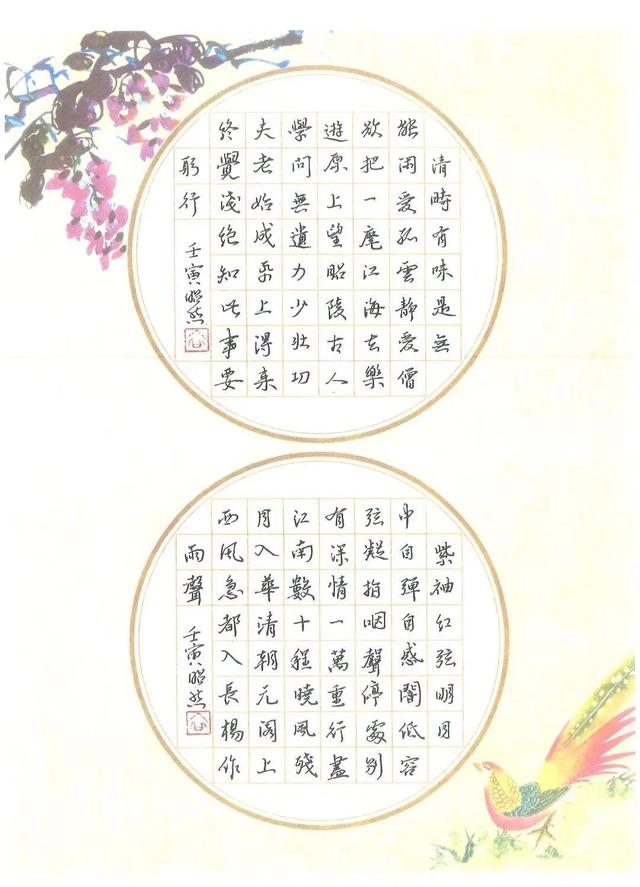 清時有味是無
能閑愛孤雲靜愛僧
欲把一麾江海去樂
遊原上望昭陵古人
學問無遺力少壯功
夫老始成帋上得來
終覺淺絕知此事要
躬行 壬寅昭然
紫袖紅弦明月
中自彈自感闇低容
弦凝指咽聲停處別
有深情一萬重行盡
江南數十程曉風殘
月入華清朝元閣上
西風急都入長楊作
雨聲 壬寅昭然